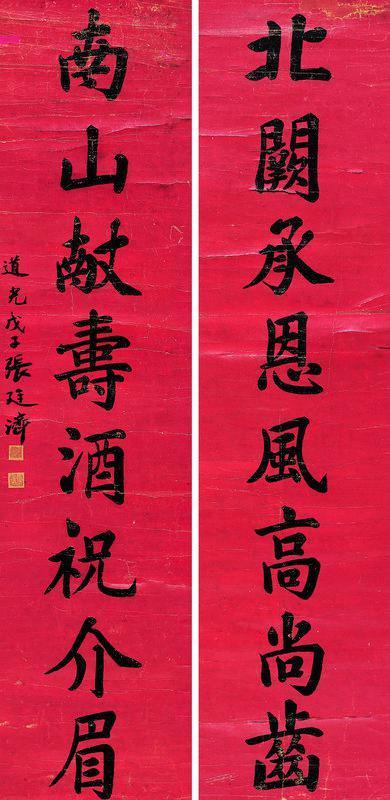 北闕承恩風高尚齒
南山献壽酒祝介眉
道光戊子張廷濟